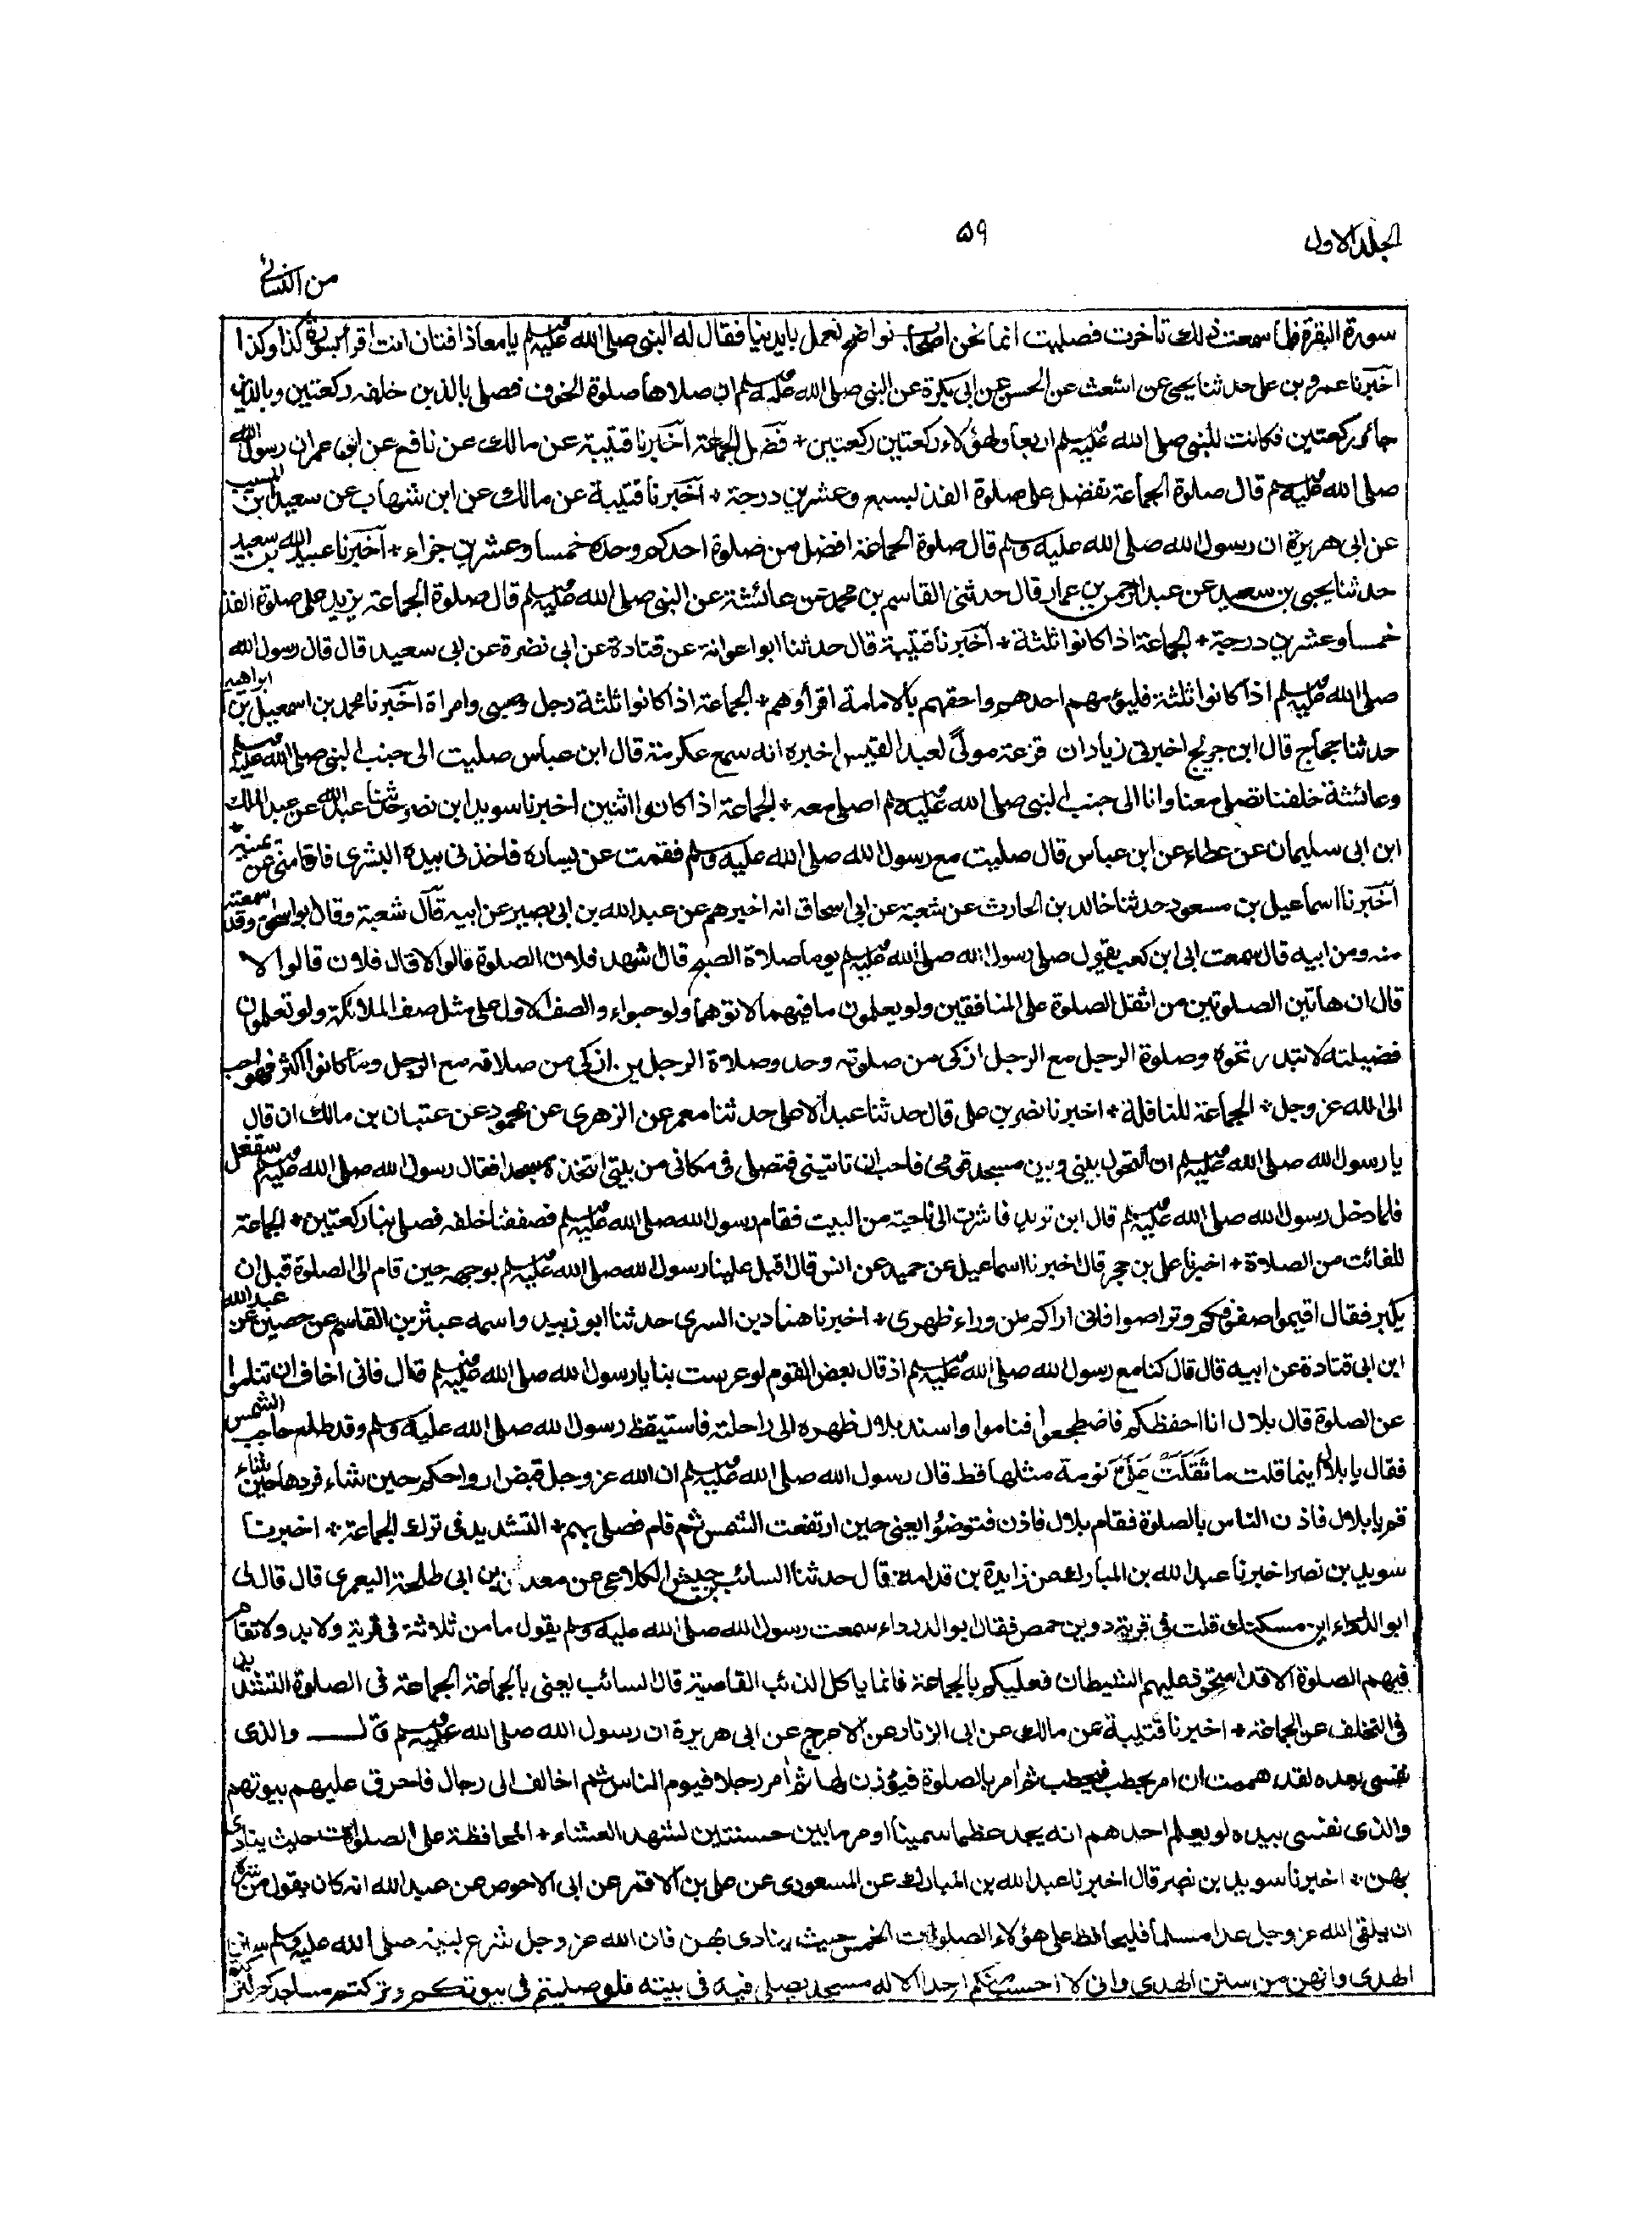 الجلد الاول
۵۹
من النسائے
سورة البقرة فلما سمعت ذلك تاخرت فصليت انما نحن اصحاب نواضح نعمل بايدينا فقال له النبي صلى الله عليه وسلم يا معاذ افتان انت اقرأ بسورة كذا وكذا
اخبرنا عمرو بن على حدثنا يحيى عن اشعث عن الحسن عن ابى بكرة عن النبي صلى الله عليه وسلم انه صلاها صلوة الخوف فصلى بالذين خلفه ركعتين وبالذين
جاؤا ركعتين فكانت للنبي صلى الله عليه وسلم اربعا ولهؤلاء ركعتين ركعتين + فضل الجماعة اخبرنا قتيبة عن مالك عن نافع عن ابن عمر ان رسول الله
صلى الله عليه وسلم قال صلوة الجماعة تفضل على صلوة الفذ بسبع وعشرين درجة + اخبرنا قتيبة عن مالك عن ابن شهاب عن سعيد بن المسيب
عن ابى هريرة ان رسول الله صلى الله عليه وسلم قال صلوة الجماعة افضل من صلوة احدكم وحده خمسا وعشرين جزاء + اخبرنا عبيد الله بن سعيد
حدثنا يحيى بن سعيد عن عبد الرحمن بن عمار قال حدثنى القاسم بن محمد عن عائشة عن النبي صلى الله عليه وسلم قال صلوة الجماعة يزيد على صلوة الفذ
خمسا وعشرين درجة + الجماعة اذا كانوا ثلثة + اخبرنا قتيبة قال حدثنا ابو اعوانة عن قتادة عن ابى نضرة عن ابى سعيد قال قال رسول الله
صلى الله عليه وسلم اذا كانوا ثلثة فليؤمهم احدهم واحقهم بالامامة اقرأوهم + الجماعة اذا كانوا ثلثة رجل وصبى وامراة اخبرنا محمد بن اسمعيل بن ابراهيم
حدثنا حجاج قال ابن جريج اخبرنى زياد ان قزعة مولى لعبد القيس اخبره انه سمع عكرمة قال ابن عباس صليت الى جنب النبي صلى الله عليه وسلم
وعائشة خلفنا تصلى معنا وانا الى جنب النبي صلى الله عليه وسلم اصلى معه + الجماعة اذا كانوا اثنين اخبرنا سويد ابن نصر حدثنا عبد الله عن عبد الملك
ابن ابى سليمان عن عطاء عن ابن عباس قال صليت مع رسول الله صلى الله عليه وسلم فقمت عن يساره فاخذنى بيده اليسرى فاقامنى عن يمينه +
اخبرنا اسماعيل بن مسعود حدثنا خالد بن الحارث عن شعبة عن ابى اسحاق انه اخبرهم عن عبد الله بن ابى بصير عن ابيه قال شعبة وقال ابو اسحق وقد سمعته
منه ومن ابيه قال سمعت ابى ابن كعب يقول صلى رسول الله صلى الله عليه وسلم يوما صلاة الصبح قال شهد فلان الصلوة قالوا لا قال فلان قالوا لا
قال ان هاتين الصلوتين من اثقل الصلوة على المنافقين ولو يعلمون ما فيهما لاتوهما ولو حبواء والصف الاول على مثل صف الملائكة ولو تعلمون
فضيلته لابتدرتموه وصلوة الرجل مع الرجل ازكى من صلوته وحده وصلاة الرجلين ازكى من صلاته مع الرجل وما كانوا اكثر فهو احب
الى الله عز وجل + الجماعة للنافلة + اخبرنا نصر بن على قال حدثنا عبد الاعلى حدثنا معمر عن الزهرى عن محمود عن عتبان بن مالك ان قال
يا رسول الله صلى الله عليه وسلم ان التحول بينى وبين مسجد قومى فاحب ان تاتينى فتصلى فى مكانى من بيتى اتخذه مسجدا فقال رسول الله صلى الله عليه وسلم سنفعل
فلما دخل رسول الله صلى الله عليه وسلم قال اين تريد فاشرت الى ناحية من البيت فقام رسول الله صلى الله عليه وسلم فصففنا خلفه فصلى بنا ركعتين + الجماعة
للفائت من الصلاة + اخبرنا على بن حجر قال اخبرنا اسماعيل عن حميد عن انس قال اقبل علينا رسول الله صلى الله عليه وسلم بوجهه حين قام الى الصلوة قبل ان
يكبر فقال اقيموا صفوفكم وتراصوا فانى اراكم من وراء ظهرى + اخبرنا هناد بن السرى حدثنا ابو زبيد واسمه عبثر بن القاسم عن حصين عن عبد الله
ابن ابى قتادة عن ابيه قال قال كنا مع رسول الله صلى الله عليه وسلم اذ قال بعض القوم لو عرست بنا يا رسول الله صلى الله عليه وسلم قال فانى اخاف ان تناموا
عن الصلوة قال بلال انا احفظكم فاضطجعوا فناموا واسند بلال ظهره الى راحلته فاستيقظ رسول الله صلى الله عليه وسلم وقد طلع حاجب الشمس
فقال يا بلال اينما قلت ما ثَقَلَتْ عَلَىَّ نومة مثلها قط قال رسول الله صلى الله عليه وسلم ان الله عز وجل قبض ارواحكم حين شاء فردها حين شاء
قم يا بلال فاذن الناس بالصلوة فقام بلال فاذن فتوضؤا يعنى حين ارتفعت الشمس ثم قام فصلى بهم + التشديد فى ترك الجماعة + اخبرنا
سويد بن نصر اخبرنا عبد الله بن المبارك عن زايدة بن قدامة قال حدثنا السائب بن حبيش الكلاعى عن معدان بن ابى طلحة اليعمرى قال قال لى
ابو الدرداء اين مسكنك قلت فى قرية دوين حمص فقال ابو الدرداء سمعت رسول الله صلى الله عليه وسلم يقول ما من ثلاثة فى قرية ولا بدو لا تقام
فيهم الصلوة الا قد استحوذ عليهم الشيطان فعليكم بالجماعة فانما ياكل الذئب القاصية قال السائب يعنى بالجماعة الجماعة فى الصلوة التشديد
فى التخلف عن الجماعة + اخبرنا قتيبة عن مالك عن ابى الزناد عن الاعرج عن ابى هريرة ان رسول الله صلى الله عليه وسلم قال والذى
نفسى بيده لقد هممت ان امر بحطب فيحطب ثم امر بالصلوة فيؤذن لها ثم امر رجلا فيوم الناس ثم اخالف الى رجال فاحرق عليهم بيوتهم
والذى نفسى بيده لو يعلم احدهم انه يجد عظما سمينا او مرمابين حسنتين لشهد العشاء + المحافظة على الصلوات حيث ينادى
بهن + اخبرنا سويد بن نصر قال اخبرنا عبد الله بن المبارك عن المسعودى عن على بن الاقمر عن ابى الاحوص عن عبد الله انه كان يقول من سره
ان يلقى الله عز وجل غدا مسلما فليحافظ على هؤلاء الصلوات الخمس حيث ينادى بهن فان الله عز وجل شرع لنبيه صلى الله عليه وسلم سنن
الهدى وانهن من سنن الهدى وانى لا احسب منكم احدا الا له مسجد يصلى فيه فى بيته فلو صليتم فى بيوتكم وتركتم مساجدكم لتركتم